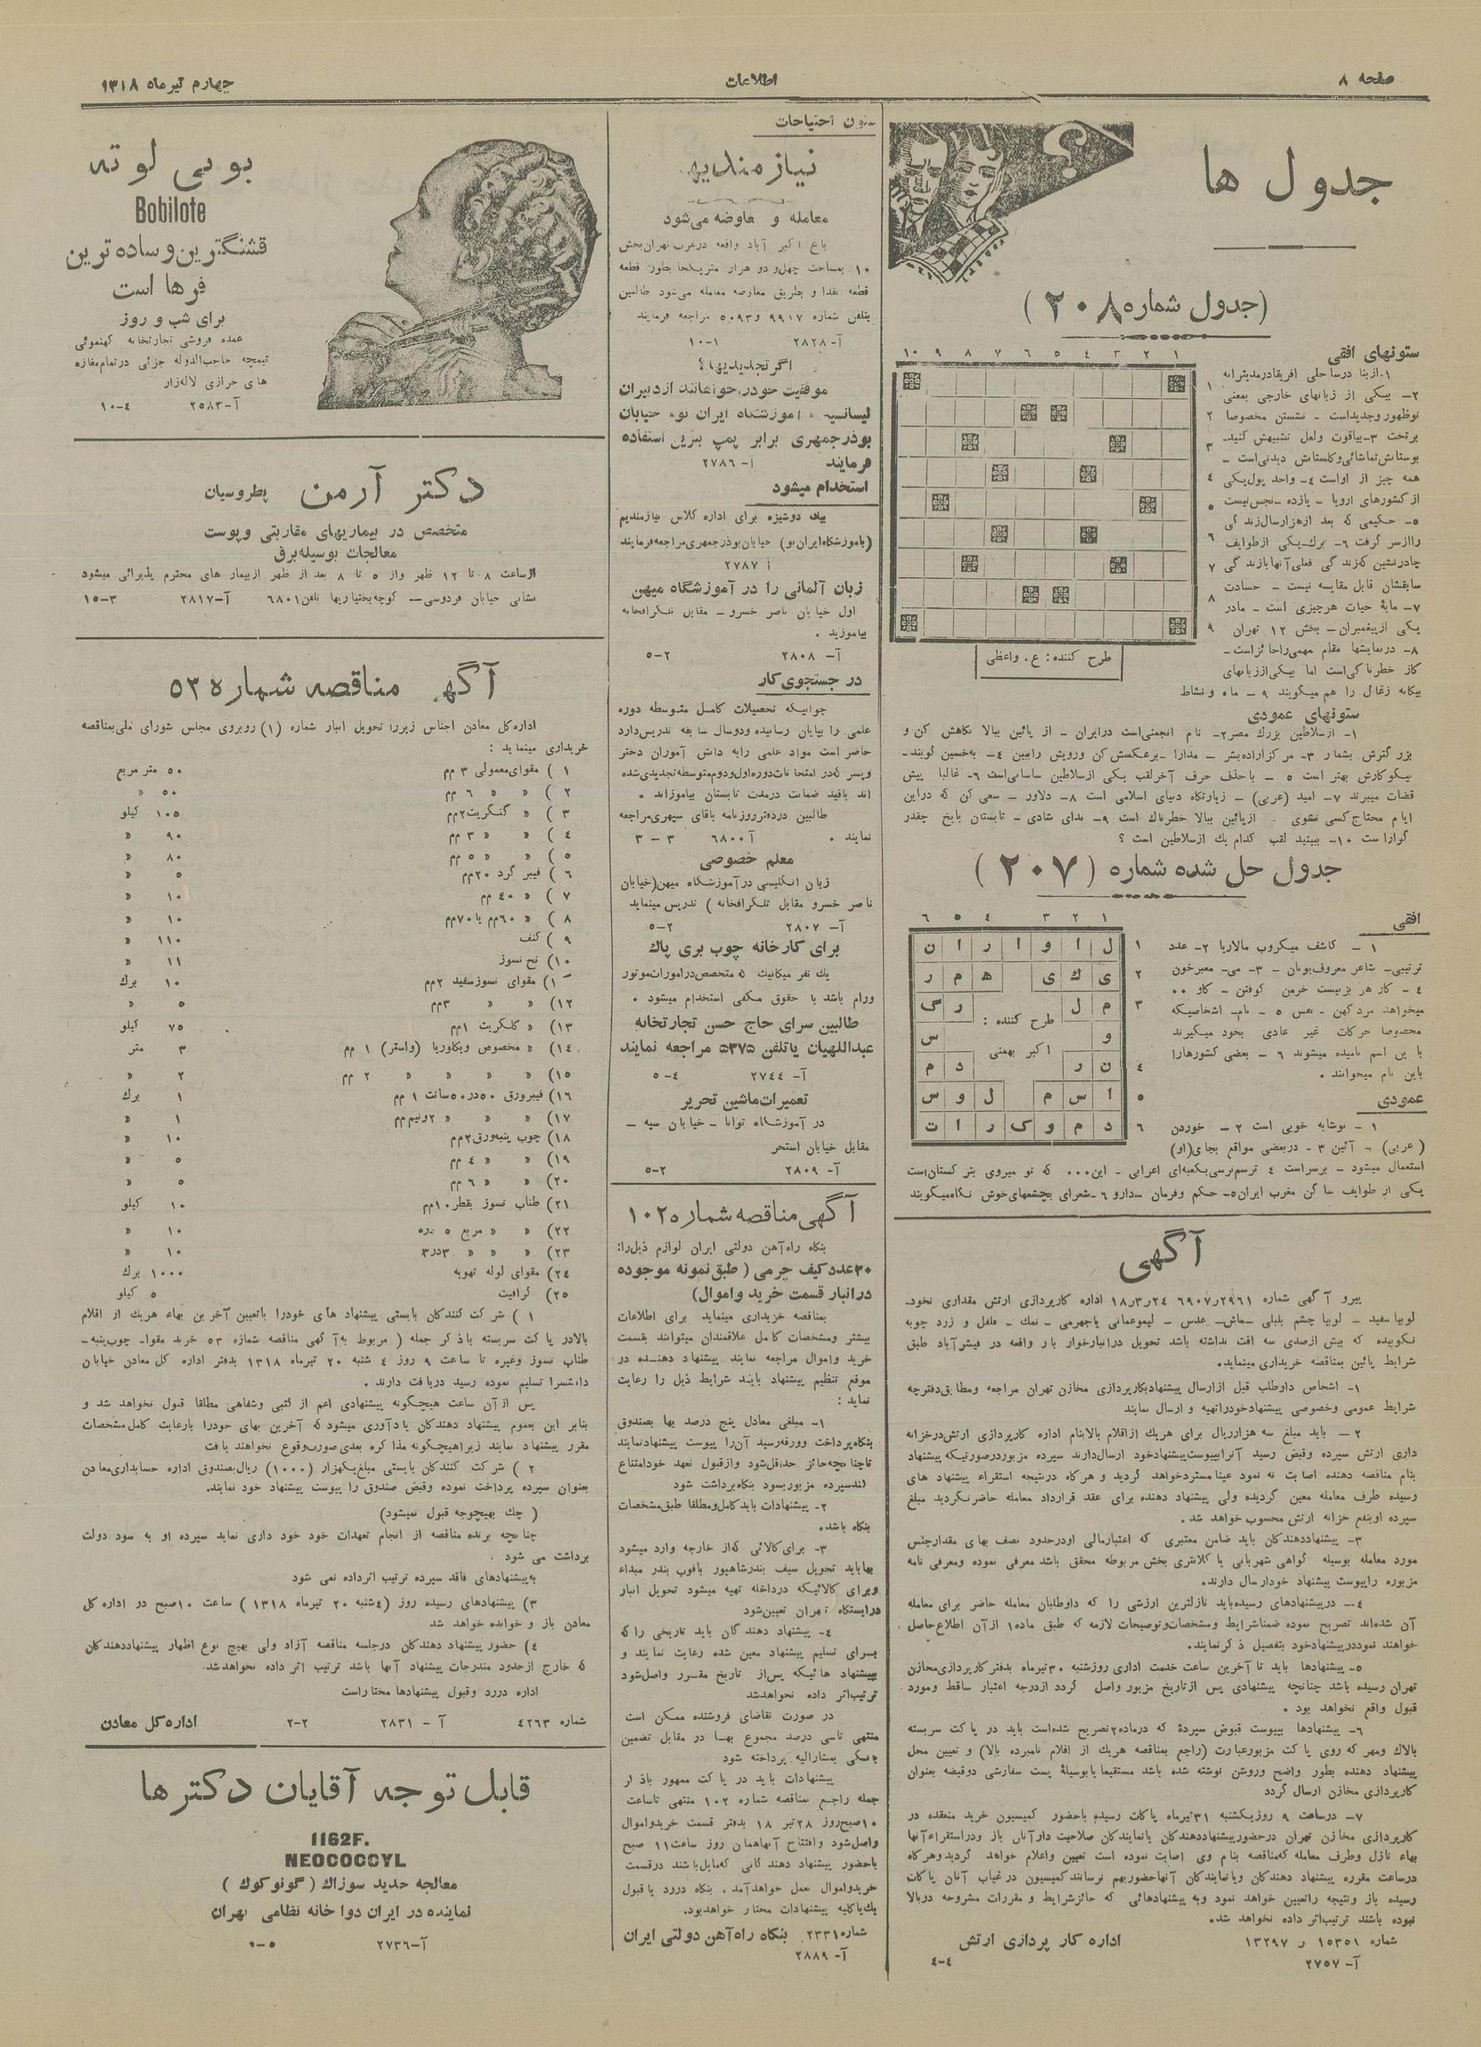 صفحه ۸
اطلاعات
چهارم تیر ماه ۱۳۱۸
جدول ها
(جدول شماره ۲۰۸)
۱ ۲ ۳ ۴ ۵ ۶ ۷ ۸ ۹ ۱۰
ستونهای افقی
۱- ازبنا درساحلی افریقا درمدیترانه
۲- بیکی از زبانهای خارجی بمعنی
نوظهور وجدیداست - نشستن مخصوصا
برتخت ۳- بیاقوت ولعل تشبیهش کنید-
بوستانش تماشائی وگلستانش دیدنی است -
همه چیز از اواست ۴- واحد پول یکی
از کشورهای اروپا - یازده - نجس نیست
۵- حکیمی که بعد از هزارسال زندگی
را ازسر گرفت ۶- برک - یکی ازطوایف
چادرنشین که زندگی فعلی آنها بازندگی
سابقشان قابل مقایسه نیست - حسادت
۷- مایهٔ حیات هرچیزی است - مادر
یکی ازپیغمبران - بخش ۱۲ تهران
۸- درنمایشها مقام مهمی راحائز است -
گاز خطرناکی است اما بیکی اززبانهای
بیگانه زغال را هم میگویند ۹ - ماه و نشاط
طرح کننده: ع. واعظی
ستونهای عمودی
۱- ازسلاطین بزرک مصر ۲- نام انجمنی است درایران - از پائین ببالا نگاهش کن و
بزرگترش بشمار ۳- مرکز اراده بشر - مدارا - برعکسش کن ورویش رابین ۴- به حسین گویند-
نیکو کارش بهتر است ۵ - باحذف حرف آخر لقب یکی ازسلاطین ساسانی است ۶- غالبا پیش
قضات میبرند ۷- امید (عربی) - زیارتگاه دنیای اسلامی است ۸- دلاور - سعی کن که دراین
ایام محتاج کسی نشوی . ازپائین ببالا خطرناک است ۹- ندای شادی - تابستان بایخ چقدر
گوارا ست ۱۰- ببینید لقب کدام یک ازسلاطین است ؟
جدول حل شده شماره (۲۰۷)
۱ ۲ ۳ ۴ ۵ ۶
ل ا و ا ر ا ن
ی ک ی ه م ر
م ل ر گ
و س
ن ر د م
ا س م ل و س
د م و ک ر ا ت
طرح کننده :
اکبر بهمنی
افقی
۱ - کاشف میکروب مالاریا ۲- عدد
ترتیبی - شاعر معروف یونان - ۳- می - معبرخون
۴ - کار هر بز نیست خرمن کوفتن - گاو ۰۰
میخواهد مرد کهن - نفس ۵ - نام - اشخاصیکه
مخصوصا حرکات غیر عادی بخود میگیرند
با ین اسم نامیده میشوند ۶ - بعضی کشورهارا
باین نام میخوانند .
عمودی
۱ - نوشابه خوبی است ۲ - خوردن
(عربی) - آئین ۳ - دربعضی مواقع بجای (او)
استعمال میشود - برسر است ۴ ترسم نرسی بکعبه ای اعرابی - این۰۰۰ که تو میروی بتر کستان است
یکی از طوایف ساکن مغرب ایران ۵- حکم وفرمان - دارو ۶- شعرای بچشمهای خوش نگاه میگویند
آگهی
پیرو آگهی شماره ۶۹۰۷ر۲۹۶۱ ۲۴ر۳ر۱۸ اداره کارپردازی ارتش مقداری نخود-
لوبیا سفید - لوبیا چشم بلبلی - ماش - عدس - لیموعمانی یاجهرمی - نمک - فلفل و زرد چوبه
نکوبیده که بیش ازصدی سه افت نداشته باشد تحویل درانبارخوار بار واقعه در فیشرآباد طبق
شرایط پائین بمناقصه خریداری مینماید.
۱- اشخاص داوطلب قبل ازارسال پیشنهاد بکارپردازی مخازن تهران مراجعه ومطابق دفترچه
شرایط عمومی وخصوصی پیشنهاد خودراتهیه و ارسال نمایند
۲ - باید مبلغ سه هزارریال برای هریک ازاقلام بالابنام اداره کارپردازی ارتش درخزانه
داری ارتش سپرده وقبض رسید آنراپیوست پیشنهاد خود ارسال دارند سپرده مزبور درصورتیکه پیشنهاد
بنام مناقصه دهنده اصابت نه نمود عینا مسترد خواهد گردید و هرگاه درنتیجه استقراء پیشنهاد های
رسیده طرف معامله معین گردیده ولی پیشنهاد دهنده برای عقد قرارداد معامله حاضر نگردید مبلغ
سپرده اوبنفع خزانه ارتش محسوب خواهد شد.
۳- پیشنهاددهندگان باید ضامن معتبری که اعتبارمالی اودرحدود نصف بهای مقدارجنس
مورد معامله بوسیله گواهی شهربانی یا کلانتری بخش مربوطه محقق باشد معرفی نموده ومعرفی نامه
مزبوره راپیوست پیشنهاد خود ارسال دارند.
۴- درپیشنهادهای رسیده باید نازلترین ارزشی را که داوطلبان معامله حاضر برای معامله
آن شده اند تصریح نموده ضمنا شرایط ومشخصات وتوضیحات لازمه که طبق ماده ۱ ازآن اطلاع حاصل
خواهند نمود درپیشنهاد خود بتفصیل ذکر نمایند.
۵- پیشنهادها باید تا آخرین ساعت خدمت اداری روزشنبه ۳۰ تیرماه بدفتر کارپردازی مخازن
تهران رسیده باشد چنانچه پیشنهادی پس ازتاریخ مزبور واصل گردد ازدرجه اعتبار ساقط ومورد
قبول واقع نخواهد بود .
۶- پیشنهادها بپیوست قبوض سپردهٔ که درماده ۲ تصریح شده است باید در پاکت سربسته
بالاک ومهر که روی پاکت مزبور عبارت (راجع بمناقصه هریک از اقلام نامبرده بالا) و تعیین محل
پیشنهاد دهنده بطور واضح وروشن نوشته شده باشد مستقیما یابوسیلهٔ پست سفارشی دوقبضه بعنوان
کارپردازی مخازن ارسال گردد
۷- درساعت ۹ روزیکشنبه ۳۱ تیرماه پاکات رسیده باحضور کمیسیون خرید منعقده در
کارپردازی مخازن تهران درحضور پیشنهاددهندگان یانمایندگان صلاحیت دارآنان باز ودراستقراء آنها
بهاء نازل وطرف معامله که مناقصه بنام وی اصابت نموده است تعیین واعلام خواهد گردید وهرگاه
درساعت مقرره پیشنهاد دهندگان ویانمایندگان آنها حضور بهم نرسانند کمیسیون درغیاب آنان پاکات
رسیده باز ونتیجه راتعیین خواهد نمود وبه پیشنهادهائی که حائز شرایط و مقررات مشروحه دربالا
نبوده باشند ترتیب اثر داده نخواهد شد.
شماره ۱۵۳۵۱ ر ۱۳۲۹۷ اداره کار پردازی ارتش
آ- ۲۷۵۷ ۴-۴
ستون احتیاجات
نیازمندیها
معامله و معاوضه می شود
باغ اکبر آباد واقعه درغرب تهران بخش
۱۰ بمساحت چهل و دو هزار متر یکجا بطور قطعه
قطعه نقدا و بطریق معاوضه معامله می شود طالبین
بتلفن شماره ۹۹۱۷ و ۵۰۹۳ مراجعه فرمایند
آ- ۲۸۲۸ ۱-۱۰
اگر تجدیدیها؟
موفقیت خودر اخواهانند ازدبیران
لیسانسیه آموزشگاه ایران نو خیابان
بوذرجمهری برابر پمپ بنزین استفاده
فرمایند آ- ۲۷۸۶
استخدام میشود
یک دوشیزه برای اداره کلاس نیازمندیم
(باموزشگاه ایران نو) خیابان بوذرجمهری مراجعه فرمایند
آ ۲۷۸۷
زبان آلمانی را در آموزشگاه میهن
اول خیابان ناصر خسرو - مقابل تلگرافخانه
بیاموزید .
آ- ۲۸۰۸ ۲-۵
در جستجوی کار
جوانیکه تحصیلات کامل متوسطه دوره
علمی را بپایان رسانیده ودوسال سابقه تدریس دارد
حاضر است مواد علمی رابه دانش آموزان دختر
وپسر که در امتحانات دوره اول ودوم متوسطه تجدیدی شده
اند باقید ضمانت درمدت تابستان بیاموزاند .
طالبین دردفتر روزنامه باقای سپهری مراجعه
نمایند . آ ۶۸۰۰ ۳ - ۳
معلم خصوصی
زبان انگلیسی در آموزشگاه میهن (خیابان
ناصر خسرو مقابل تلگرافخانه) تدریس مینماید
آ- ۲۸۰۷ ۲-۵
برای کارخانه چوب بری پاک
یک نفر میکانیک که متخصص در امورات موتور
ورام باشد با حقوق مکفی استخدام میشود .
طالبین سرای حاج حسن تجارتخانه
عبداللهیان یاتلفن ۵۳۷۵ مراجعه نمایند
آ- ۲۷۴۴ ۴-۵
تعمیرات ماشین تحریر
در آموزشگاه توانا - خیابان سپه -
مقابل خیابان استخر
آ- ۲۸۰۹ ۲-۵
آگهی مناقصه شماره ۱۰۲
بنگاه راه آهن دولتی ایران لوازم ذیل را:
۳۰ عدد کیف چرمی (طبق نمونه موجوده
در انبار قسمت خرید و اموال)
بمناقصه خریداری مینماید برای اطلاعات
بیشتر ومشخصات کامل علاقمندان میتوانند بقسمت
خرید واموال مراجعه نمایند پیشنهاد دهنده در
موقع تنظیم پیشنهاد بایند شرایط ذیل را رعایت
نماید :
۱- مبلغی معادل پنج درصد بها بصندوق
بنگاه پرداخت وورقه رسید آن را پیوست پیشنهاد نمایند
تاچنانچه حائز حداقل شود وازقبول تعهد خود امتناع
کند سپرده مزبور بسود بنگاه برداشت شود
۲- پیشنهادات باید کامل ومطلقا طبق مشخصات
بنگاه باشد.
۳- برای کالائی که از خارجه وارد میشود
بها باید تحویل سیف بندرشاهپور یافوب بندر مبداء
وبرای کالائیکه درداخله تهیه میشود تحویل انبار
در ایستگاه تهران تعیین شود
۴- پیشنهاد دهندگان باید تاریخی را که
برای تسلیم پیشنهاد معین شده رعایت نمایند و
پیشنهادهائیکه پس از تاریخ مقرر واصل شود
ترتیب اثر داده نخواهد شد
در صورت تقاضای فروشنده ممکن است
منتهی تاسی درصد مجموع بها در مقابل تضمین
بانکی بمشارالیه پرداخته شود
پیشنهادات باید در پاکت ممهور باذکر
جمله راجع بمناقصه شماره ۱۰۲ منتهی تاساعت
۱۰ صبح روز ۲۸ تیر ۱۸ بدفتر قسمت خرید واموال
واصل شود وافتتاح آنها همان روز ساعت ۱۱ صبح
باحضور پیشنهاد دهندگانی که مایل باشند درقسمت
خرید واموال بعمل خواهد آمد . بنگاه دررد یا قبول
یک یا کلیه پیشنهادات مختار خواهد بود.
شماره ۲۳۳۱ بنگاه راه آهن دولتی ایران
آ- ۲۸۸۹
بوبی لوته
Bobilote
قشنگترین و ساده ترین
فرها است
برای شب و روز
عمده فروشی تجارتخانه کهنموئی
تیمچه حاجب الدوله جزئی در تمام مغازه
های خرازی لاله زار
آ- ۲۵۸۳ ۴-۱۰
دکتر آرمن پطروسیان
متخصص در بیماریهای مقاربتی و پوست
معالجات بوسیله برق
ازساعت ۸ تا ۱۲ ظهر واز ۵ تا ۸ بعد از ظهر ازبیمار های محترم پذیرائی میشود
نشانی خیابان فردوسی - کوچه بختیاریها تلفن ۶۸۰۱ آ- ۲۸۱۷ ۳-۱۵
آگهی مناقصه شماره ۵۳
اداره کل معادن اجناس زیررا تحویل انبار شماره (۱) روبروی مجلس شورای ملی بمناقصه
خریداری مینماید :
۱ ) مقوای معمولی ۳ مم ۵۰ متر مربع
۲ ) « « ۶ مم ۵۰ «
۳ ) « گنگریت ۲ مم ۱۰۵ کیلو
۴ ) « « ۳ مم ۹۰ «
۵ ) « « ۵ مم ۸۰ «
۶ ) فیبر گرد ۲۰ مم ۵ «
۷ ) « ۴۰ مم ۱۰ «
۸ ) « ۶۰ مم یا ۷۰ مم ۱۰ «
۹ ) کنف ۱۱۰ «
۱۰) نخ نسوز ۱۱ «
۱۱) مقوای نسوز سفید ۲ مم ۱۰ برک
۱۲) « « ۳ مم ۵ «
۱۳) « کلگریت ۱ مم ۷۵ کیلو
۱۴) « مخصوص ویکاوریا (واستر) ۱ مم ۳ متر
۱۵) « « « « ۲ مم ۲ «
۱۶) فیبرورق ۵۰ در ۵۰ سانت ۱ مم ۱ برک
۱۷) « « « ۲ ونیم مم ۱ «
۱۸) چوب پنبه ورق ۲ مم ۱۰ «
۱۹) « « ۴ مم ۵ «
۲۰) « « ۶ مم ۵ «
۲۱) طناب نسوز بقطر ۱۰ مم ۱۰ کیلو
۲۲) « « مربع ۵ در ۵ ۱۰ «
۲۳) « « « ۳ در ۳ ۱۰ «
۲۴) مقوای لوله تهویه ۱۰۰۰ برک
۲۵) گرافیت ۵ کیلو
۱ ) شرکت کنندگان بایستی پیشنهاد های خودرا باتعیین آخرین بهاء هریک از اقلام
بالا در پاکت سربسته باذکر جمله (مربوط به آگهی مناقصه شماره ۵۳ خرید مقوا- چوب پنبه-
طناب نسوز وغیره تا ساعت ۹ روز ۴ شنبه ۲۰ تیرماه ۱۳۱۸ بدفتر اداره کل معادن خیابان
دانشسرا تسلیم نموده رسید دریافت دارند .
پس از آن ساعت هیچگونه پیشنهادی اعم از کتبی وشفاهی مطلقا قبول نخواهد شد و
بنابر این بعموم پیشنهاد دهندگان یادآوری میشود که آخرین بهای خودرا بارعایت کامل مشخصات
مقرر پیشنهاد نمایند زیرا هیچگونه مذاکره بعدی صورت وقوع نخواهند یافت
۲ ) شرکت کنندگان بایستی مبلغ یکهزار (۱۰۰۰) ریال بصندوق اداره حسابداری معادن
بعنوان سپرده پرداخت نموده وقبض صندوق را پیوست پیشنهاد خود نمایند.
(چک بهیچوجه قبول نمیشود)
چنانچه برنده مناقصه از انجام تعهدات خود خود داری نماید سپرده او به سود دولت
برداشت می شود .
به پیشنهادهای فاقد سپرده ترتیب اثر داده نمی شود
۳) پیشنهادهای رسیده روز (۴ شنبه ۲۰ تیرماه ۱۳۱۸) ساعت ۱۰ صبح در اداره کل
معادن باز و خوانده خواهد شد
۴) حضور پیشنهاد دهندگان درجلسه مناقصه آزاد ولی بهیچ نوع اظهار پیشنهاد دهندگان
که خارج ازحدود مندرجات پیشنهاد آنها باشد ترتیب اثر داده نخواهد شد.
اداره دررد وقبول پیشنهادها مختار است
شماره ۴۲۶۳ آ - ۲۸۳۱ ۲-۲ اداره کل معادن
قابل توجه آقایان دکترها
1162F.
NEOCOCCYL
معالجه جدید سوزاک (گونوکوک)
نماینده در ایران دواخانه نظامی تهران
آ- ۲۷۳۶